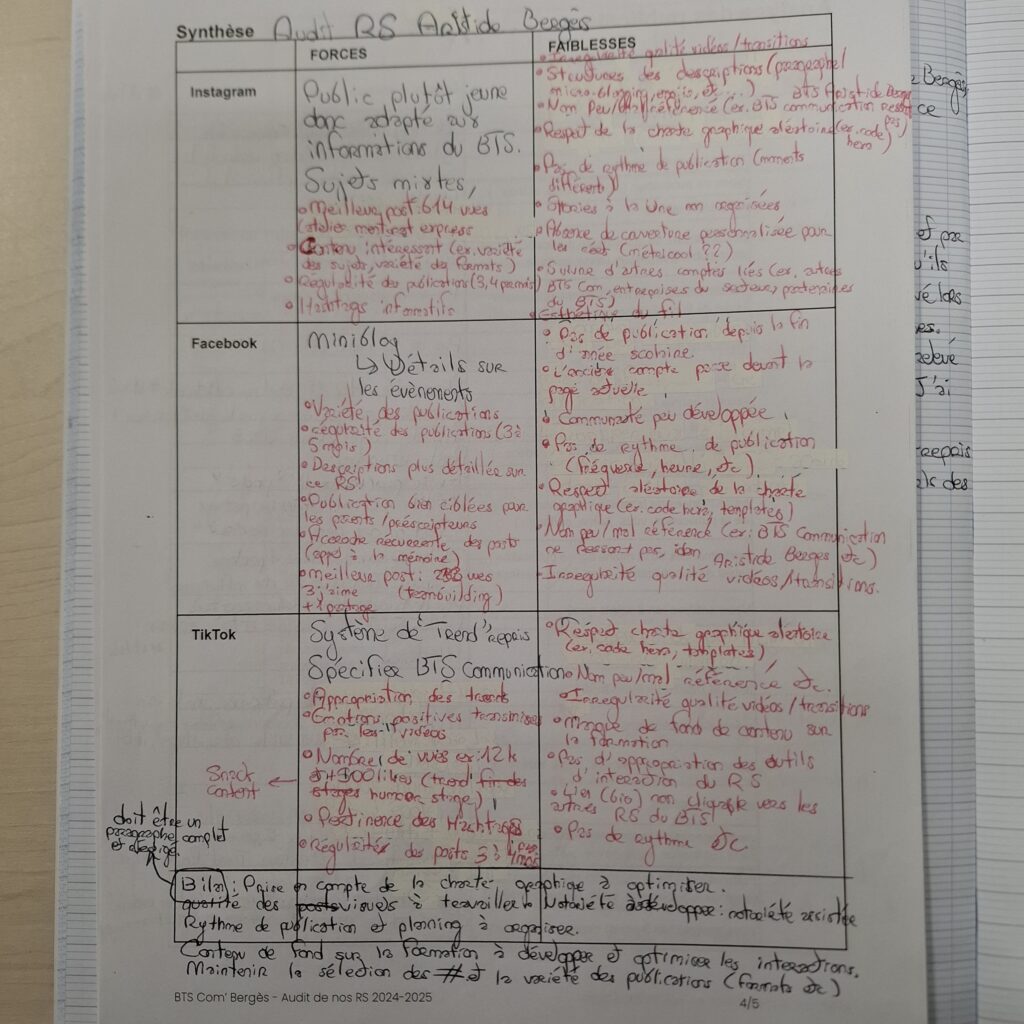 Synthèse Audit RS Aristide Bergès
FORCES
FAIBLESSES
Instagram
Public plutôt jeune
donc adapté aux
informations du BTS.
Sujets mixtes,
• Meilleur post: 614 vues
(atelier mentorat express
• Contenu intéressant (ex. variété
des sujets, variété des formats)
• Régularité des publications (3, 4 par mois)
• Hashtags informatifs
• Irrégularité qualité vidéos/transitions
• Structures des descriptions (paragraphe/
micro-blogging, emojis, etc...)
• Nom peu/mal référencé (ex. BTS communication ressort pas) BTS Aristide Bergès
• Respect de la charte graphique aléatoire (ex. code hexa)
• Pas de rythme de publication (moments
différents)
• Stories à la Une non organisées
• Absence de couverture personnalisée pour
les réels (métricool ??)
• Suivre d'autres comptes liés (ex. autres
BTS Com, entreprises du secteur, partenaires
du BTS)
• Esthétique du fil
Facebook
Miniblog
↳ Détails sur
les évènements
• Variété des publications
• régularité des publications (3 à
5 mois)
• Descriptions plus détaillée sur
ce RS
• Publication bien ciblées par
les parents/préscripteurs
• Accroche récurrente des posts
(appel à la mémoire)
• Meilleur post: vues
3 j'aime (teambuilding)
+ 1 partage
• Pas de publication depuis la fin
d'année scolaire
• L'ancien compte passe devant la
page actuelle
• Communauté peu développée
• Pas de rythme de publication
(fréquence, heure, etc).
• Respect aléatoire de la charte
graphique (ex. code hexa, templates)
• Nom peu/mal référencé (ex: BTS Communication
ne ressort pas, idem Aristide Bergès etc)
• Irrégularité qualité vidéos/transitions.
TikTok
Système de "Trend" repris
Spécifier BTS Communication
• Appropriation des trends
• Emotions positives transmises
par les vidéos
• Nombre de vues ex: 12k
et +300 likes (trend fin des
stages humour stage)
Snack
content ←
• Pertinence des Hachtags
• Régularités des posts 3 à 4/mois
• Respect charte graphique aléatoire
(ex. code hexa, templates)
• Nom peu/mal référencé etc.
• Irrégularité qualité vidéos/transitions
• Manque de fond de contenu sur
la formation
• Pas d'appropriation des outils
d'interaction du RS
• Lien (bio) non cliquable vers les
autres RS du BTS
• Pas de rythme etc
doit être un
paragraphe complet
et rédigé.
Bilan: Prise en compte de la charte graphique à optimiser.
qualité des posts visuels à travailler. Notoriété à développer: notoriété assistée
Rythme de publication et planning à organiser.
Contenu de fond sur la formation à développer et optimiser les interactions.
Maintenir la sélection des # et la variété des publications (formats etc)
BTS Com' Bergès - Audit de nos RS 2024-2025
4/5
Bergès,
ce
et par
qu'ils
vé lors
es.
relevé
J'ai
repais
als des